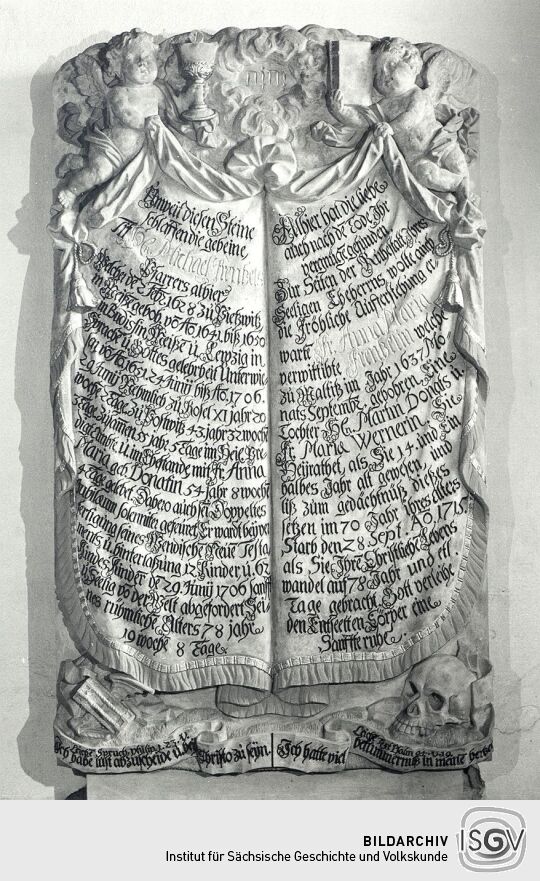 יהוה
Unweit diesen Steine
schlaffen die gebeine,
Tit. He. Michael Frentzels
Pfarrers alhier
Welcher de Feb. 1628 zu Pietzwitz
gebohr. vō Ao 1641 biß 1650
in Budißin, Meißē u. Leipzig in
Sprachē u. Gottes gelehrheit Unterwie-
sē, vō Ao 1651 24 Junÿ biß Ao 1706.
29 Junÿ Nemlich zu Kosel XI jahr 20
woche Tage zu Postwitz 43 jahr 32 woche
Tage Zusamen 55 jahr Tage im Heil: Pre-
digt ambte, u. im Ehestande mit Fr. Anna
Maria geb. Donatin 54 jahr 8 woche
Tage gelebet Dahero auch sei Doppeltes
Jubilæum solenniter gefeyret, Er ward beÿ ver-
fertigung seines Wendische Neue Testa-
ments, u. hinterlassung 12 Kinder u. 67
Kindes Kinder de 29. Junÿ 1706 sanfft
u. Seelig vō der Welt abgefordert Sei-
nes rühmliche Alters 78 jahr
19 woche 8 Tage.
Alhier hat die liebe
auch nach de Tode Ihr
vermögē gefunden
Zur Seiten der Ruhestat Ihres
Seeligen Eheherrns, wolte auch
die Fröhliche Aufferstehung er-
warte Fr. Anna Maria
verwittibte Frentzelin welche
zu Malitz im Jahr 1637 Mo-
nats Septembr. gebohren, eine
Tochter He. Martin Donats u.
Fr. Maria Wernerin, Ein
Heÿrathet, als Sie 14. und Ein
halbes Jahr alt gewesen und
liß zum gedächtnüß dießes
setzen im 70 Jahr Ihres Alters
Starb den 28 Sept. Ao 171
als Sie Ihre Christliche Lebens
wandel auf 78 Jahr und etl
Tage gebracht. Gott verleihe
den Entseelten Cörper eine
Sanffte ruhe.
Leiche Spruch Phil.
Ich habe lust abzuscheidē ū. beÿ
Christo zu seÿn.
Ich hatte viel
Leiche Text Psalm 94. v. 19
bekümmernüß in meinē hertzē
BILDARCHIV
Institut für Sächsische Geschichte und Volkskunde
ISGV